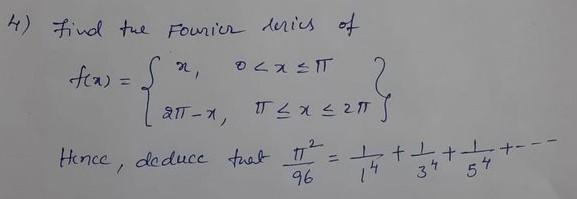 4) Find the Fourier series of
f(x) = { x, 0 < x ≤ π
2π - x, π ≤ x ≤ 2π }
Hence, deduce that π²/96 = 1/1⁴ + 1/3⁴ + 1/5⁴ + ---